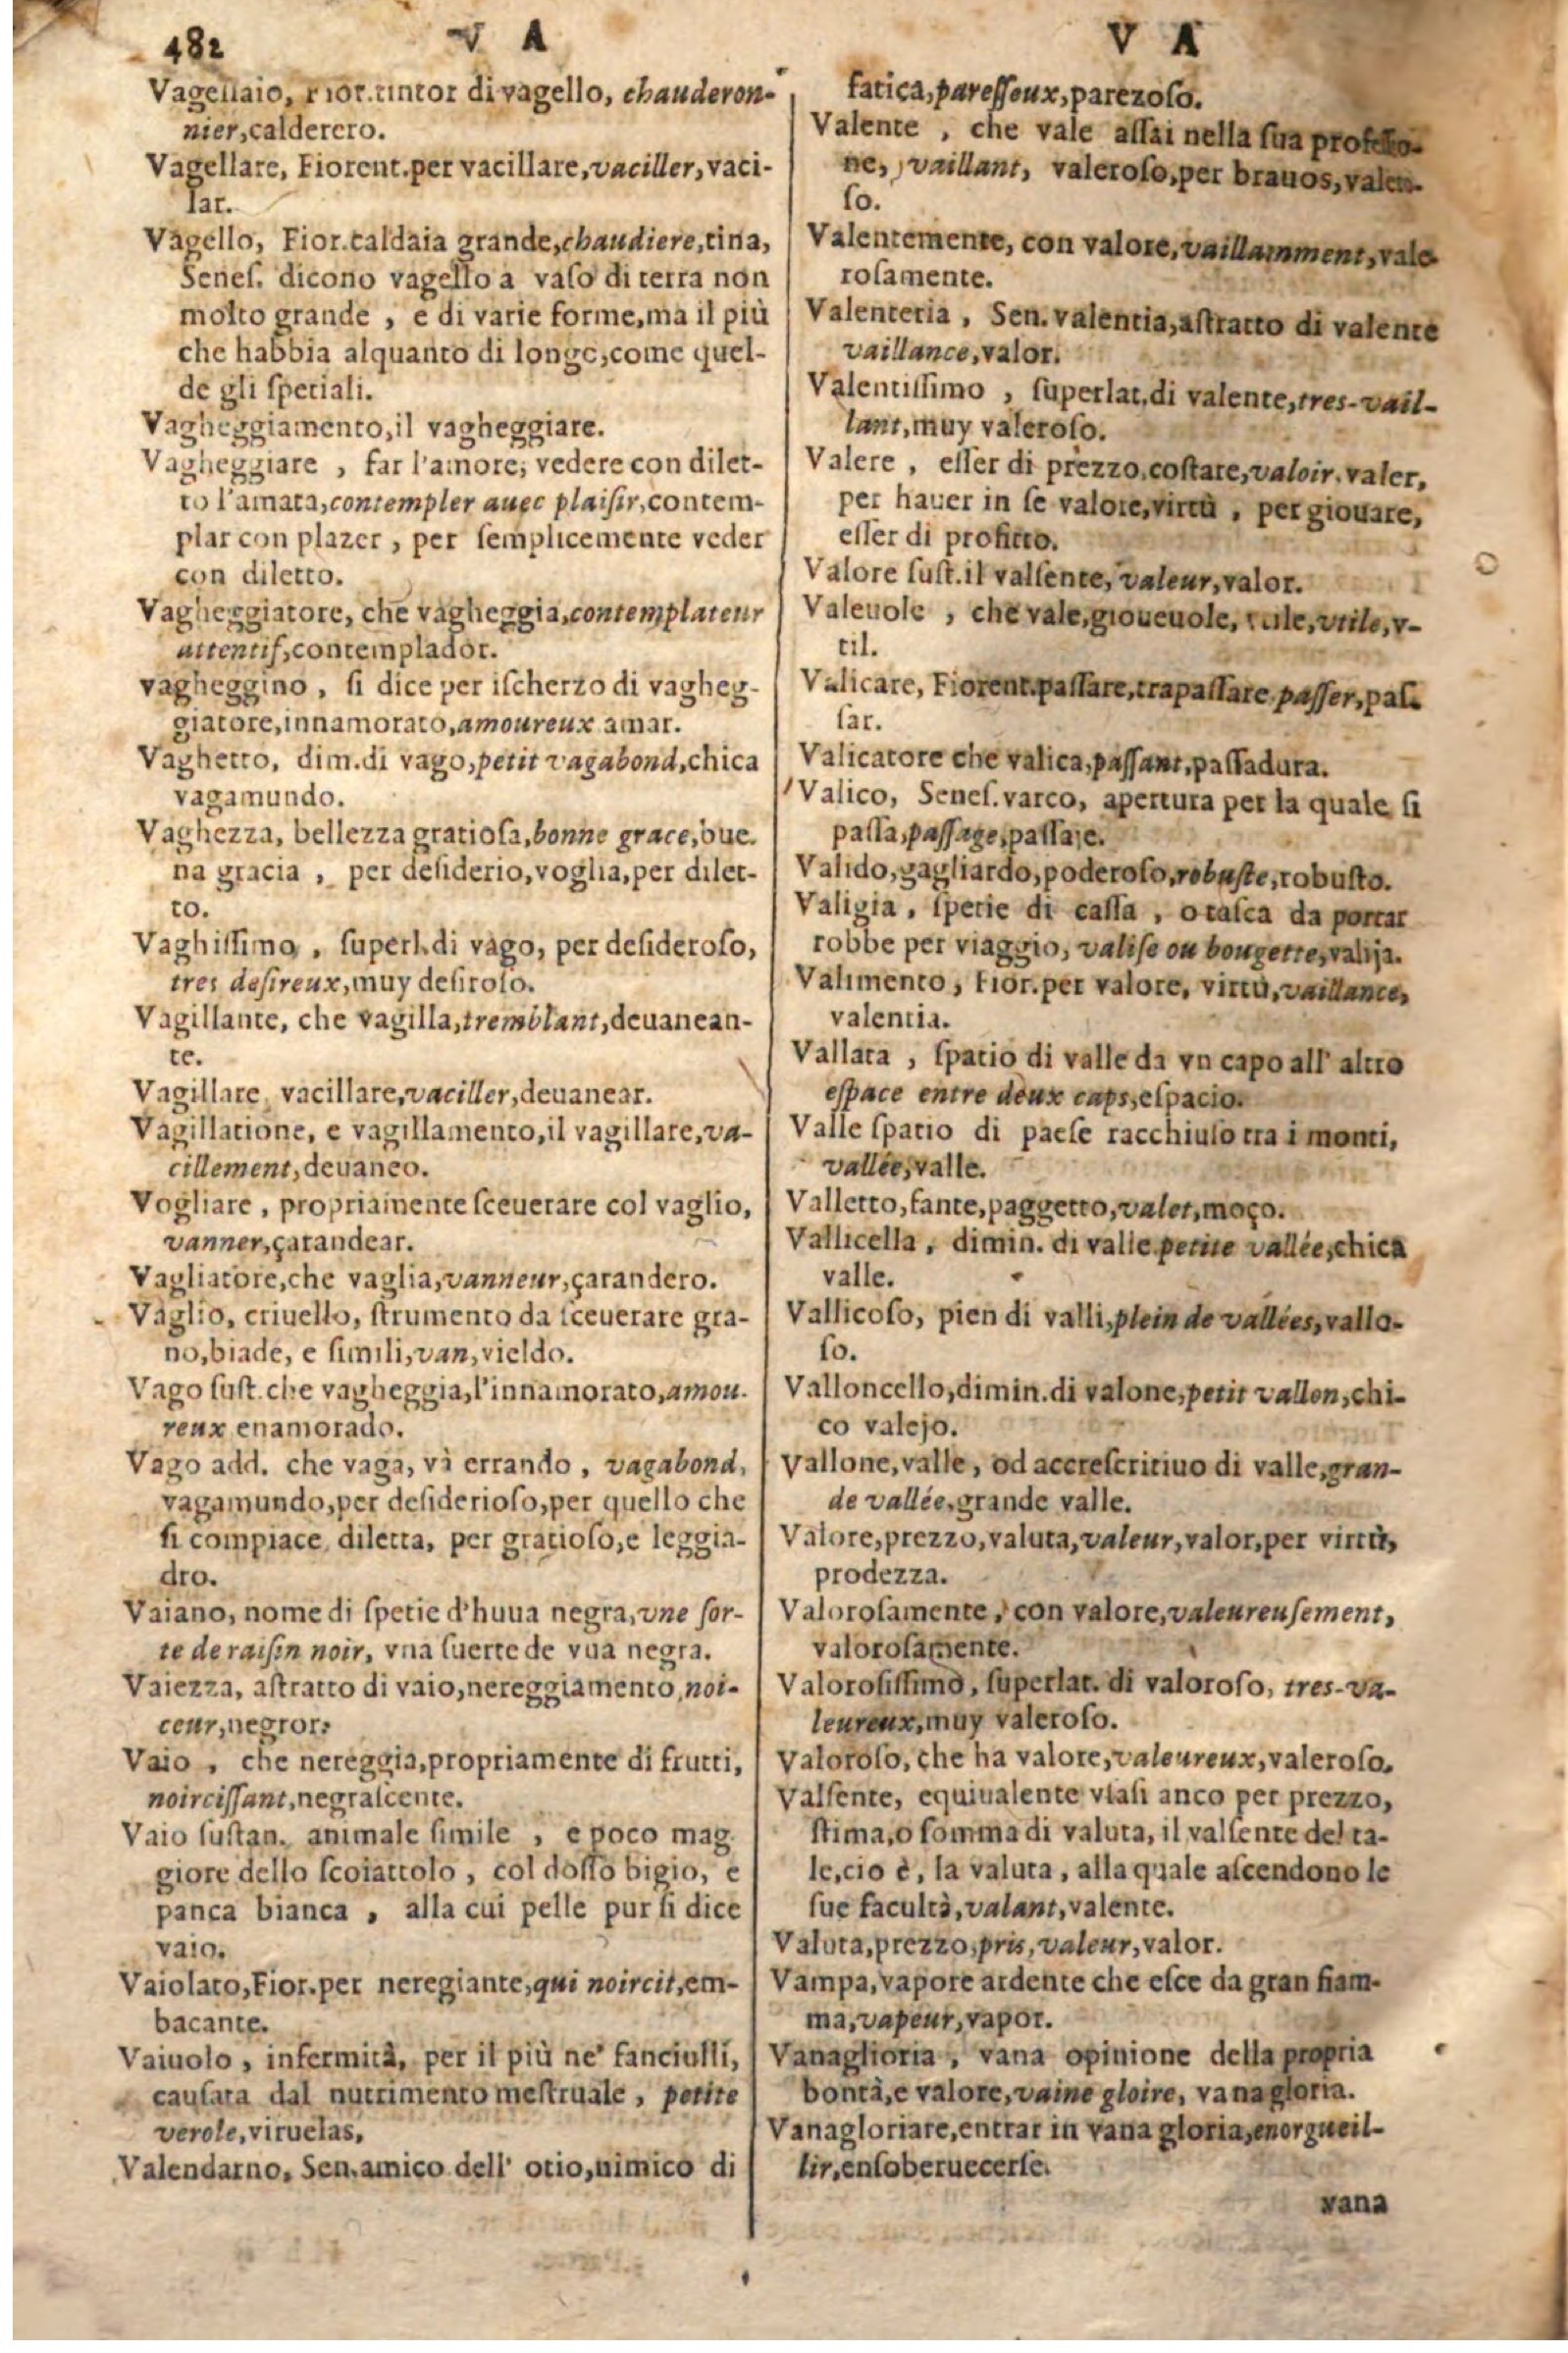 482
V A
Vagellaio, Fior.tintor di vagello, chauderon-
nier,calderero.
Vagellare, Fiorent.per vacillare,vaciller,vaci-
lar.
Vagello, Fior.caldaia grande,chaudiere,tina,
Seneſ. dicono vagello a vaſo di terra non
molto grande , e di varie forme,ma il più
che habbia alquanto di longo,come quel-
de gli ſpetiali.
Vagheggiamento,il vagheggiare.
Vagheggiare , far l'amore; vedere con dilet-
to l'amata,contempler auec plaiſir,contem-
plar con plazer , per ſemplicemente veder
con diletto.
Vagheggiatore, che vagheggia,contemplateur
attentif,contemplador.
vagheggino , ſi dice per iſcherzo di vagheg-
giatore,innamorato,amoureux amar.
Vaghetto, dim.di vago,petit vagabond,chica
vagamundo.
Vaghezza, bellezza gratioſa,bonne grace,bue.
na gracia , per deſiderio,voglia,per dilet-
to.
Vaghiſſimo , ſuperl.di vago, per deſideroſo,
tres deſireux,muy deſiroſo.
Vagillante, che vagilla,tremblant,deuanean-
te.
Vagillare, vacillare,vaciller,deuanear.
Vagillatione, e vagillamento,il vagillare,va-
cillement,deuaneo.
Vogliare , propriamente ſceuerare col vaglio,
vanner,çarandear.
Vagliatore,che vaglia,vanneur,çarandero.
Vaglio, criuello, ſtrumento da ſceuerare gra-
no,biade, e ſimili,van,vieldo.
Vago ſuſt.che vagheggia,l'innamorato,amou.
reux enamorado.
Vago add. che vaga, và errando , vagabond,
vagamundo,per deſiderioſo,per quello che
ſi compiace, diletta, per gratioſo,e leggia-
dro.
Vaiano, nome di ſpetie d'huua negra,vne ſor-
te de raiſin noir, vna ſuerte de vua negra.
Vaiezza, aſtratto di vaio,nereggiamento,noi-
ceur,negror.
Vaio , che nereggia,propriamente di frutti,
noirciſſant,negraſcente.
Vaio ſuſtan. animale ſimile , e poco mag
giore dello ſcoiattolo , col doſſo bigio, e
panca bianca , alla cui pelle pur ſi dice
vaio.
Vaiolato,Fior.per neregiante,qui noircit,em-
bacante.
Vaiuolo , infermità, per il più ne' fanciulli,
cauſata dal nutrimento meſtruale , petite
verole,viruelas,
Valendarno, Sen.amico dell' otio,nimico di
V A
fatica,pareſſeux,parezoſo.
Valente , che vale aſſai nella ſua profeſſio-
ne, vaillant, valeroſo,per brauos,valen-
ſo.
Valentemente, con valore,vaillamment,vale
roſamente.
Valenteria , Sen.valentia,aſtratto di valente
vaillance,valor.
Valentiſſimo , ſuperlat.di valente,tres-vail-
lant,muy valeroſo.
Valere , eſſer di prezzo,coſtare,valoir.valer,
per hauer in ſe valore,virtù , per giouare,
eſſer di profitto.
Valore ſuſt.il valſente, valeur,valor.
Valeuole , che vale,gioueuole, vtile,vtile,v-
til.
Valicare, Fiorent.paſſare,trapaſſare,paſſer,paſ-
ſar.
Valicatore che valica,paſſant,paſſadura.
Valico, Seneſ.varco, apertura per la quale ſi
paſſa,paſſage,paſſaje.
Valido,gagliardo,poderoſo,robuſte,robuſto.
Valigia , ſpetie di caſſa , o taſca da portar
robbe per viaggio, valiſe ou bougette,valija.
Valimento, Fior.per valore, virtù,vaillance,
valentia.
Vallata , ſpatio di valle da vn capo all' altro
eſpace entre deux caps,eſpacio.
Valle ſpatio di paeſe racchiuſo tra i monti,
vallée,valle.
Valletto,fante,paggetto,valet,moço.
Vallicella , dimin. di valle.petite vallée,chica
valle.
Vallicoſo, pien di valli,plein de vallées,vallo-
ſo.
Valloncello,dimin.di valone,petit vallon,chi-
co valejo.
Vallone,valle, od accreſcritiuo di valle,gran-
de vallée,grande valle.
Valore,prezzo,valuta,valeur,valor,per virtù,
prodezza.
Valoroſamente, con valore,valeureuſement,
valoroſamente.
Valoroſiſſimo, ſuperlat. di valoroſo, tres-va-
leureux,muy valeroſo.
Valoroſo, che ha valore,valeureux,valeroſo.
Valſente, equiualente vſaſi anco per prezzo,
ſtima,o ſomma di valuta, il valſente del ta-
le,cio è, la valuta , alla quale aſcendono le
ſue facultà,valant,valente.
Valuta,prezzo,pris,valeur,valor.
Vampa,vapore ardente che eſce da gran fiam-
ma,vapeur,vapor.
Vanaglioria , vana opinione della propria
bontà,e valore,vaine gloire, vana gloria.
Vanagloriare,entrar in vana gloria,enorgueil-
lir,enſoberuecerſe.
vana